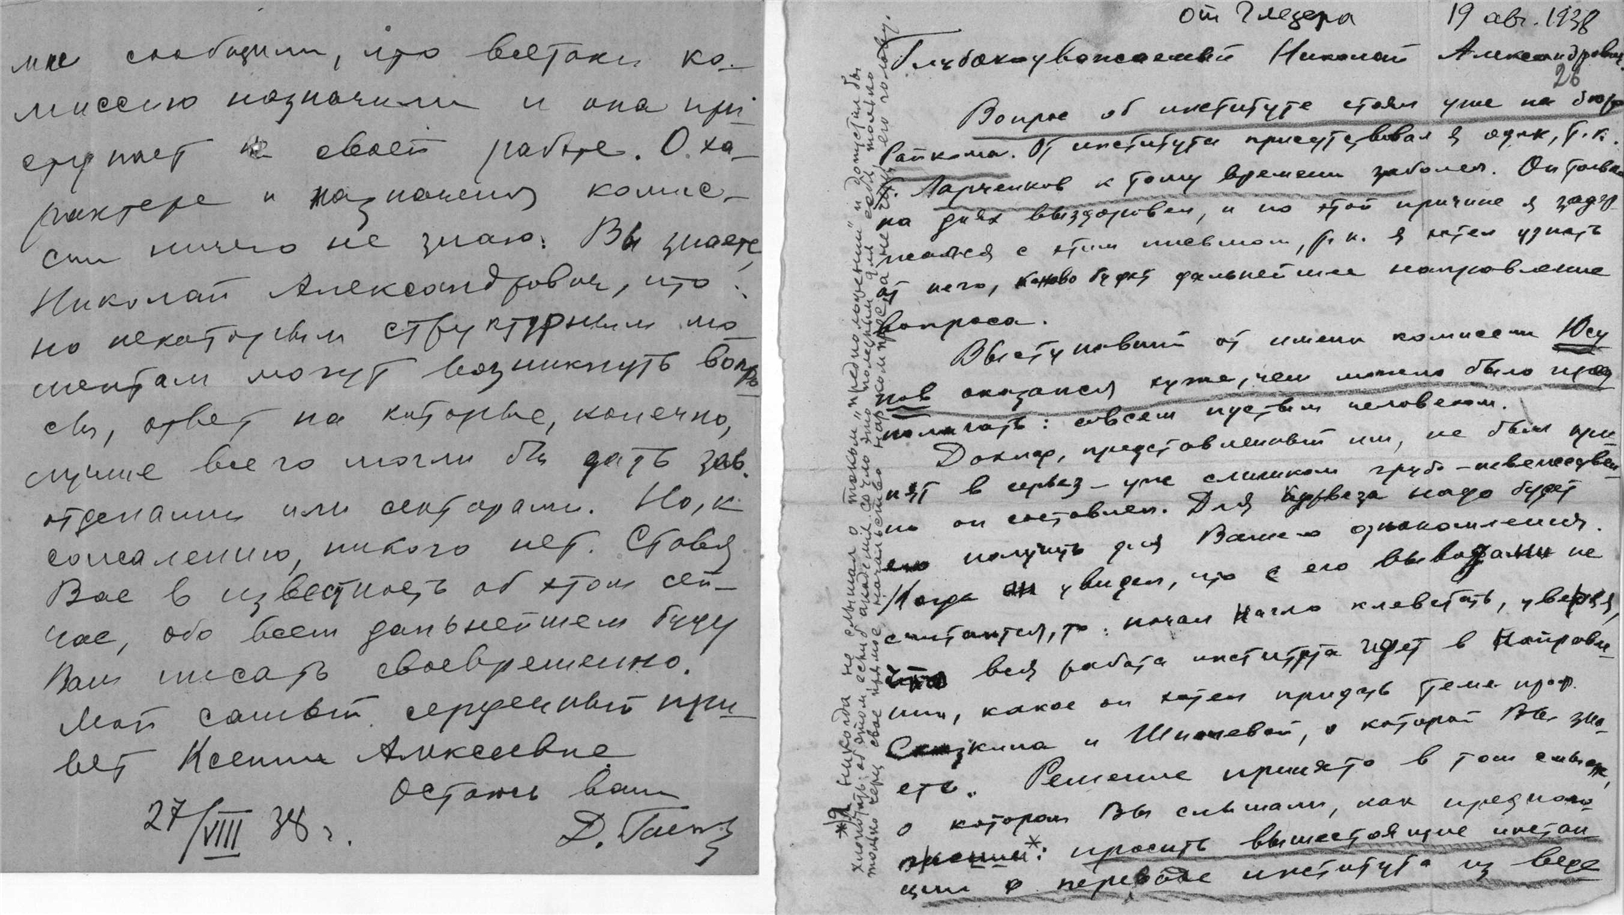 мне сообщили, что всетаки ко-
миссию назначили и она при-
ступает к своей работе. О ха-
рактере и назначения комис-
сии ничего не знаю. Вы знаете,
Николай Александрович, что
по некоторым структурным мо-
ментам могут возникнуть вопро-
сы, ответ на которые, конечно,
лучше всего могли бы дать зав.
отделами или секторами. Но, к
сожалению, никого нет. Ставя
Вас в известность об этом сей-
час, обо всем дальнейшем буду
Вам писать своевременно.
Мой самый сердечный при-
вет Ксении Алексеевне
Остаюсь ваш
27/VIII 38 г.
Д.
от Глезера 19 авг. 1938
Глубокоуважаемый Николай Александрович.
26
Вопрос об институте стоял уже на бюро
Райкома. От института присутствовал я один, т.к.
т. Ларченков к тому времени заболел. Он только
на днях выздоровел, и по этой причине я задер
жался с этим письмом, т.к. я хотел узнать
от него, каково будет дальнейшее направление
вопроса.
Выступавший от имени комиссии Юсу
пов оказался хуже, чем можно было пред
полагать: совсем пустым человеком.
Доклад, представленный им, не был при
нят в серьез - уже слишком грубо-невежествен
но он составлен. Для курьеза надо будет
его получить для Вашего ознакомления.
Когда он увидел, что с его выводами не
считаются, то начал нагло клеветать, уверяя,
что вся работа института идет в направле-
нии, какое он хотел придать теме проф.
и о которой Вы зна-
ете. Решение принято в том смысле,
о котором Вы слышали, как предполо
жении*: просить вышестоящие инстан
ции о переводе института из веде
*Я никогда не слышал о таком "предположении" и допустил бы
хлопотать об этом если б академия сочла это полезным для себя, но только
только через свое прямое начальство наркомпроса а не через его голову.